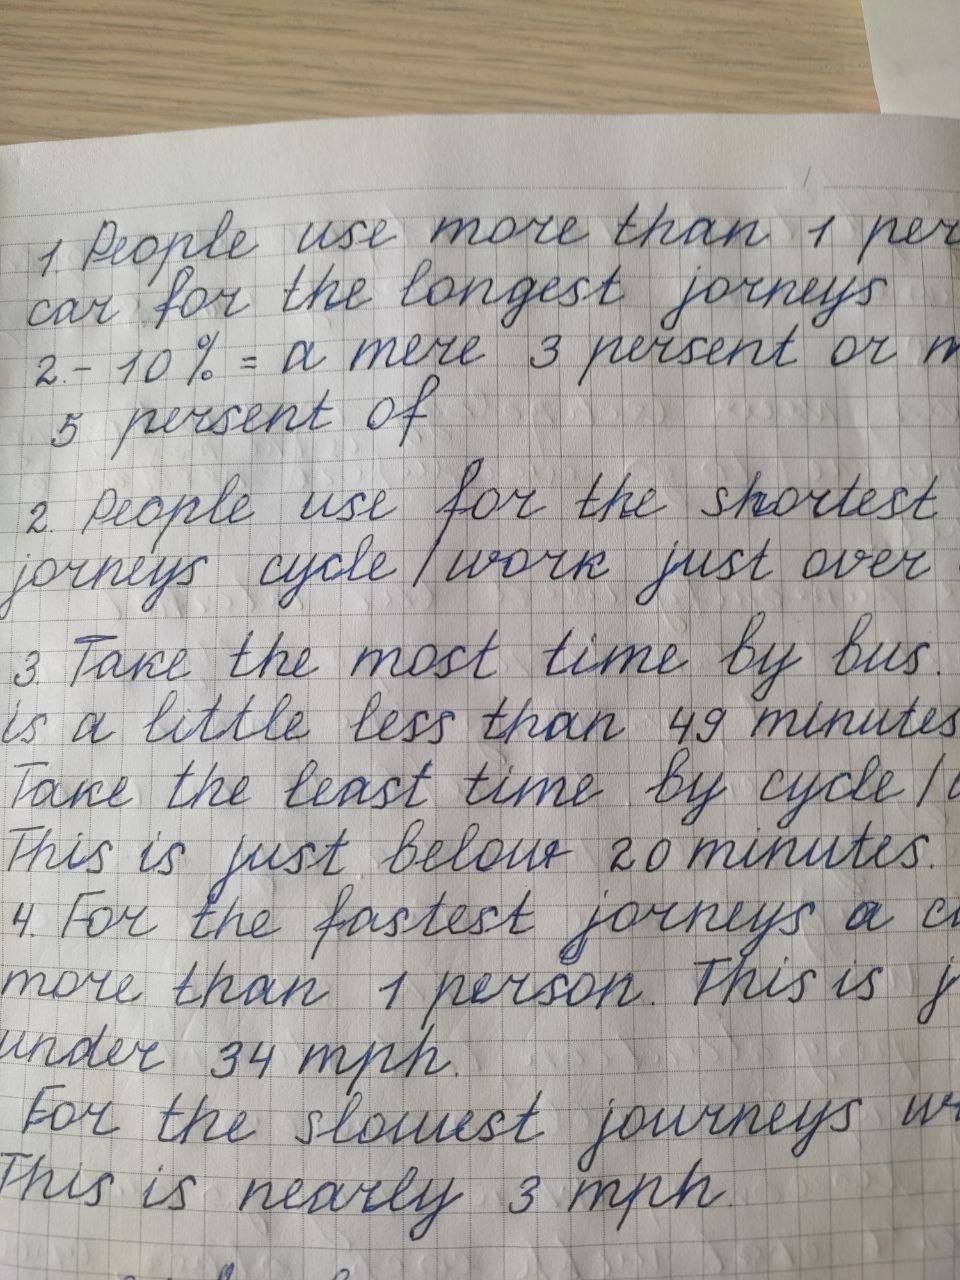 1. People use more than 1 per
car for the longest jorneys
2.- 10% = a mere 3 persent or m
5 persent of
2. People use for the shortest
jorneys cycle / work just over
3. Take the most time by bus.
is a little less than 49 minutes
Take the least time by cycle /
This is just below 20 minutes.
4. For the fastest jorneys a c
more than 1 person. This is j
under 34 mph.
For the slowest journeys w
This is nearly 3 mph.